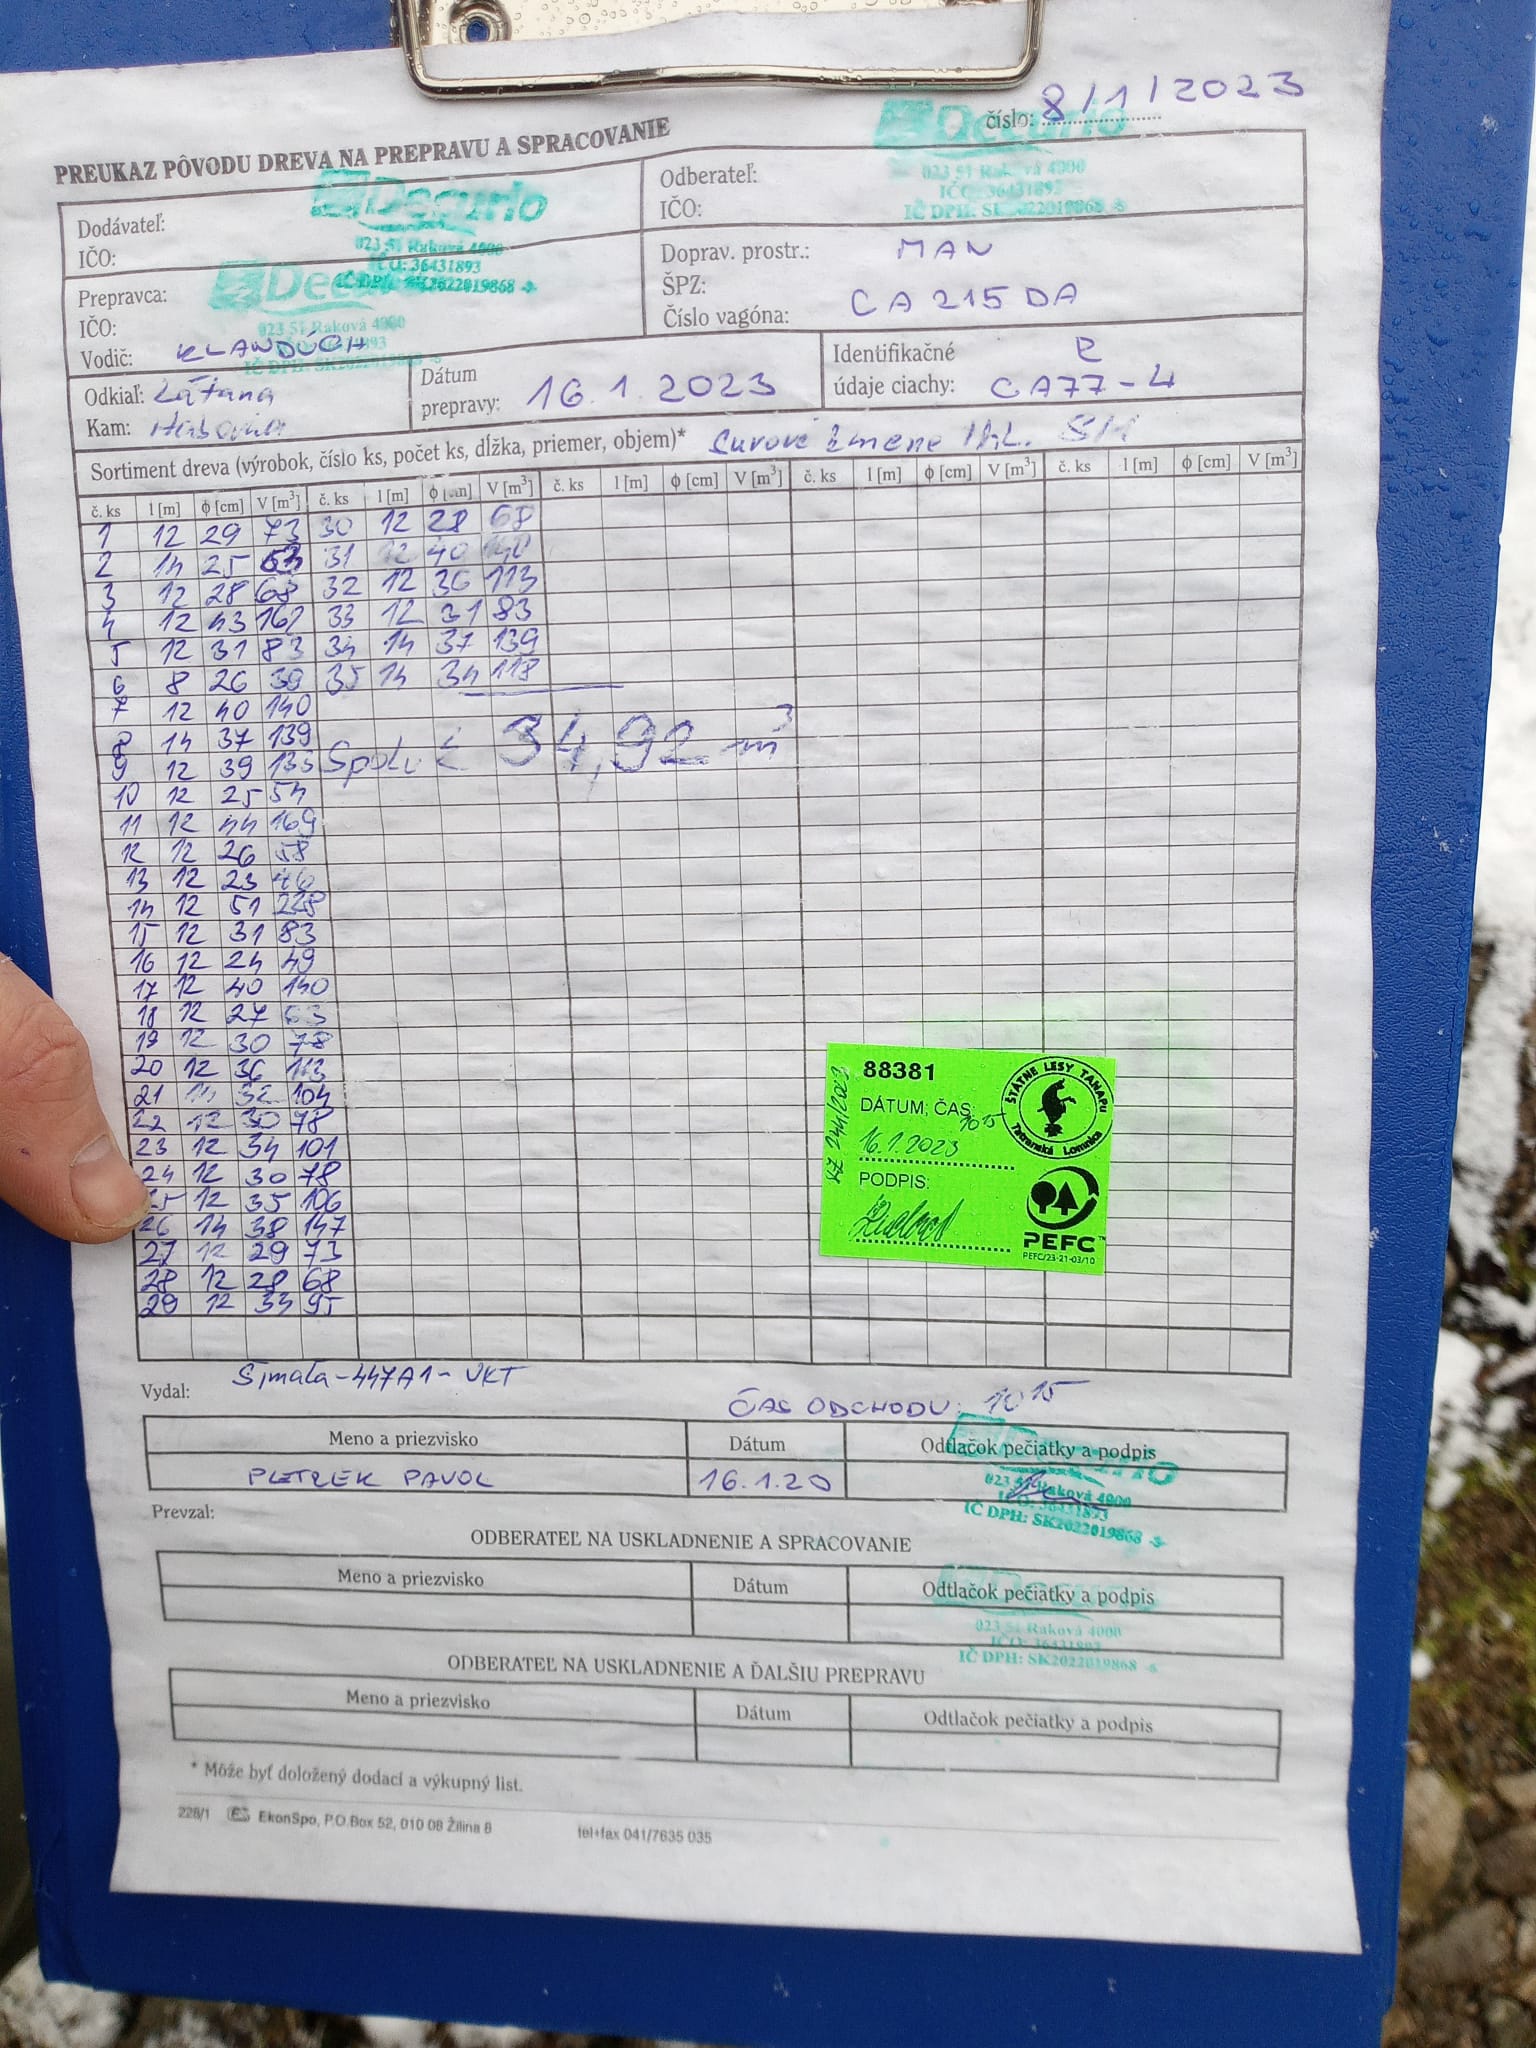 číslo: 8/1/2023
PREUKAZ PÔVODU DREVA NA PREPRAVU A SPRACOVANIE
Decurio
023 51 Raková 4000
IČO: 36431893
IČ DPH: SK2022019868 -8-
Dodávateľ:
IČO:
Decurio
023 51 Raková 4000
IČO: 36431893
IČ DPH: SK2022019868 -8-
Odberateľ:
IČO:
Prepravca:
IČO:
Vodič: KLANDÚCH
023 51 Raková 4000
Doprav. prostr.: MAN
ŠPZ: CA 215 DA
Číslo vagóna:
Odkiaľ:
Kam:
Dátum prepravy: 16.1.2023
Identifikačné údaje ciachy: CA77-4
Sortiment dreva (výrobok, číslo ks, počet ks, dĺžka, priemer, objem)* Surové
č. ks l [m] ϕ [cm] V [m³] č. ks l [m] ϕ [cm] V [m³] č. ks l [m] ϕ [cm] V [m³] č. ks l [m] ϕ [cm] V [m³] č. ks l [m] ϕ [cm] V [m³]
1 12 29 73 30 12 28 68
2 14 25 31 12 40 140
3 12 28 68 32 12 36 113
4 12 43 162 33 12 31 83
5 12 31 83 34 14 37 139
6 8 26 39 35 14 34 118
7 12 40 140
8 14 37 139
9 12 39 133
Spolu: 34,92 m³
10 12 25 54
11 12 44 169
12 12 26 58
13 12 23 46
14 12 51 228
15 12 31 83
16 12 24 49
17 12 40 140
18 12 27 63
19 12 30 78
20 12 36 113
21 14 32 104
22 12 30 78
23 12 34 101
24 12 30 78
25 12 35 106
26 14 38 147
27 12 29 73
28 12 28 68
29 12 33 95
88381
DÁTUM, ČAS: 10 15
16.1.2023
PODPIS:
ŠTÁTNE LESY TANAPU
Tatranská Lomnica
PEFC™
PEFC/23-21-03/10
Šimaľa-447A1-VKT
Vydal:
ČAS ODCHODU: 10 15
Meno a priezvisko Dátum Odtlačok pečiatky a podpis
PLETZEK PAVOL 16.1.20
023 51 Raková 4000
IČO: 36431893
IČ DPH: SK2022019868 -3-
Prevzal:
ODBERATEĽ NA USKLADNENIE A SPRACOVANIE
Meno a priezvisko Dátum Odtlačok pečiatky a podpis
023 51 Raková 4000
IČO: 36431893
IČ DPH: SK2022019868 -8-
ODBERATEĽ NA USKLADNENIE A ĎALŠIU PREPRAVU
Meno a priezvisko Dátum Odtlačok pečiatky a podpis
* Môže byť doložený dodací a výkupný list.
228/1 ES EkonSpo, P.O.Box 52, 010 08 Žilina 8 tel+fax 041/7635 035